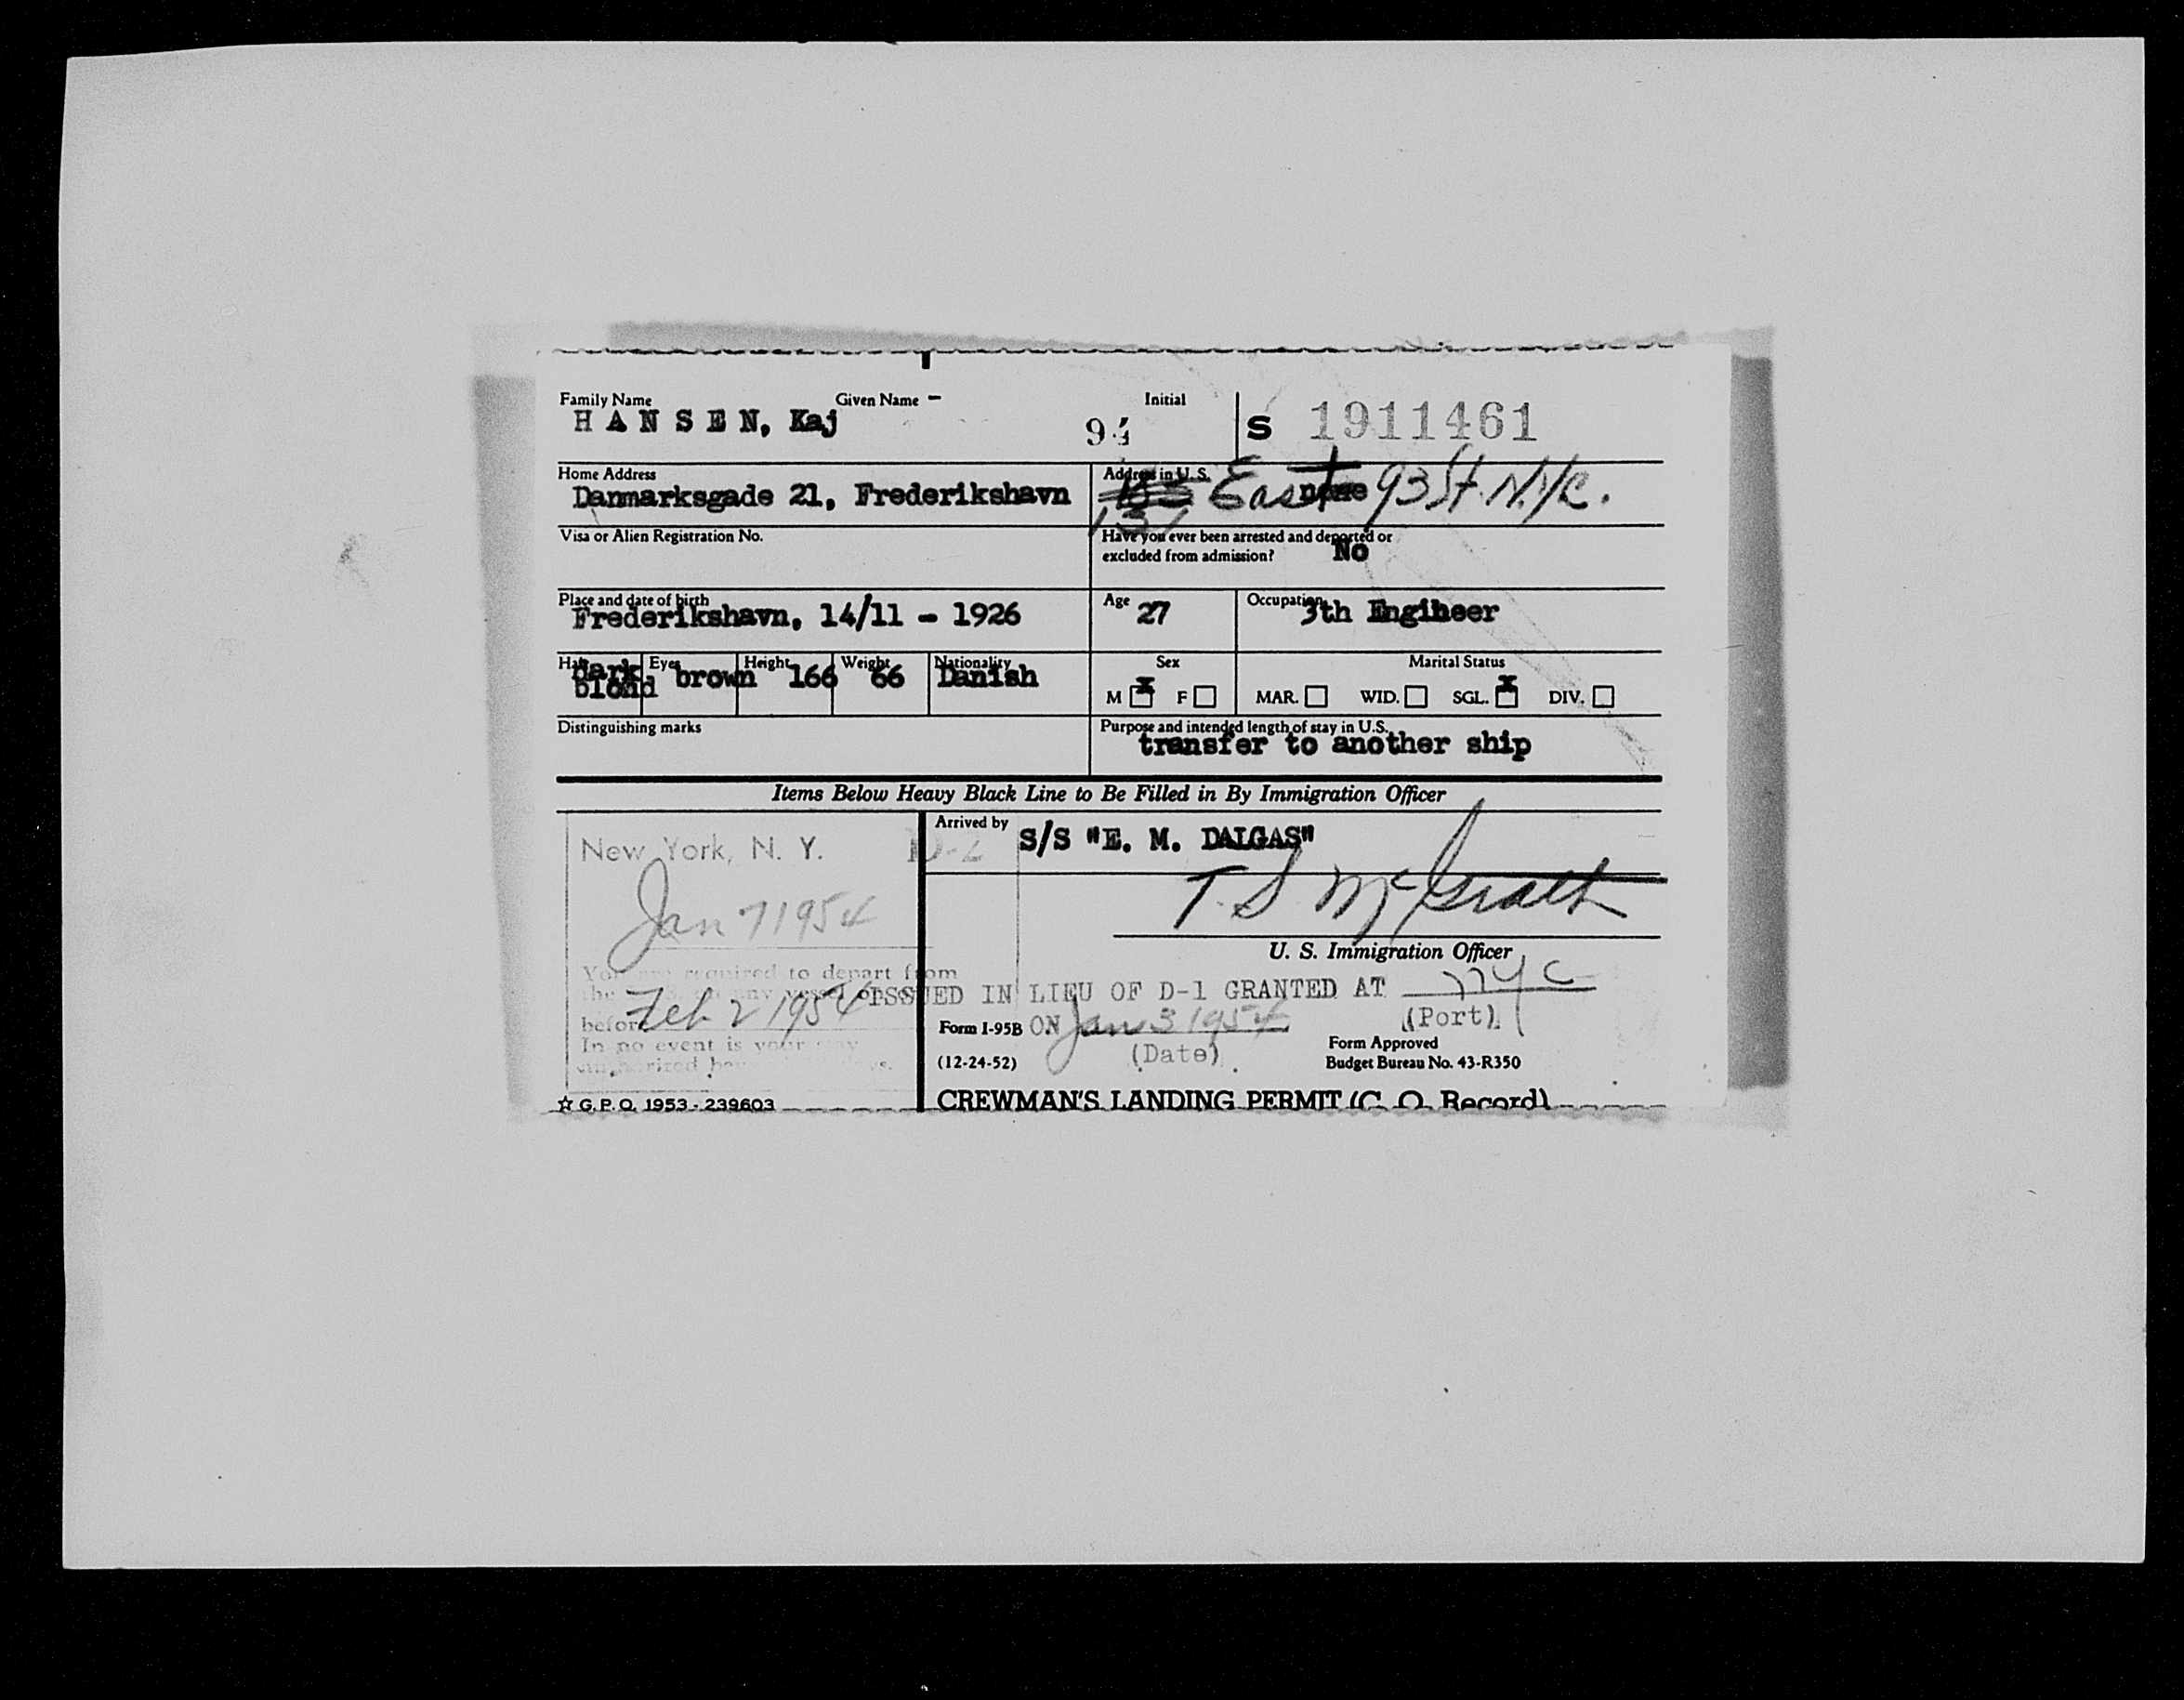 Family Name Given Name - Initial
H A N S E N, Kaj
S 1911461
Home Address
Danmarksgade 21, Frederikshavn
Address in U.S.
none
131 East 93 St. N.Y.C.
Visa or Alien Registration No.
Have you ever been arrested and deported or
excluded from admission? No
Place and date of birth
Frederikshavn, 14/11 - 1926
Age 27
Occupation 3th Engineer
Hair dark
blond
Eyes brown
Height 166
Weight 66
Nationality
Danish
Sex
M X F
Marital Status
MAR. WID. SGL. X DIV.
Distinguishing marks
Purpose and intended length of stay in U.S.
transfer to another ship
Items Below Heavy Black Line to Be Filled in By Immigration Officer
New York, N. Y. D-2
Jan 7 1954
You are required to depart from
the any vessel on or
before Feb 2 1954
In no event is your stay
Arrived by S/S "E. M. DALGAS"
T. S. McGrath
U. S. Immigration Officer
ISSUED IN LIEU OF D-1 GRANTED AT NYC
(Port)
Form I-95B ON Jan 3 1954
(Date)
(12-24-52)
Form Approved
Budget Bureau No. 43-R350
☆ G.P.O. 1953-239603
CREWMAN'S LANDING PERMIT (C. O. Record)